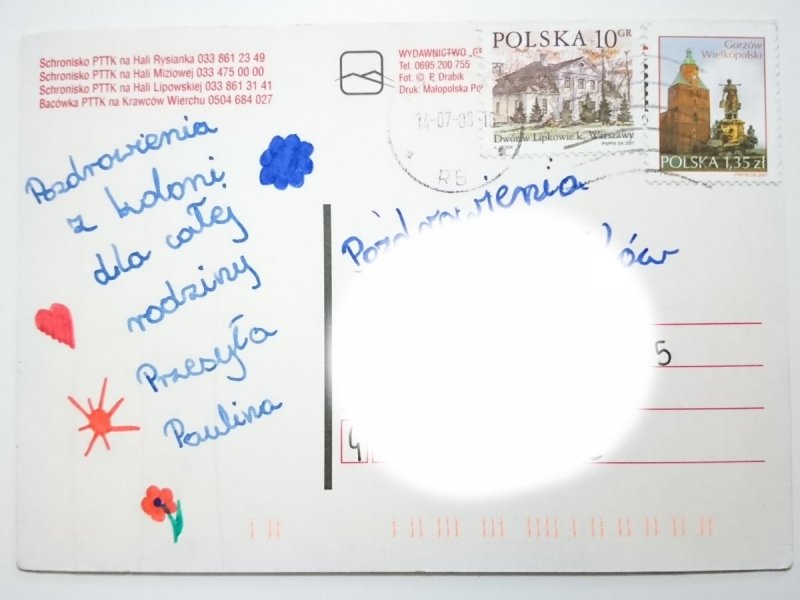 Schronisko PTTK na Hali Rysianka 033 861 23 49
Schronisko PTTK na Hali Miziowej 033 475 00 00
Schronisko PTTK na Hali Lipowskiej 033 861 31 41
Bacówka PTTK na Krawców Wierchu 0504 684 027
WYDAWNICTWO
Tel. 0695 200 755
Fot. © P. Drabik
Druk: Małopolska
POLSKA 10 GR
Dwór w Lipkowie k. Warszawy
Gorzów
Wielkopolski
POLSKA 1,35 zł
Pozdrowienia
z kolonii
dla całej
rodziny
Przesyła
Paulina
Pozdrowienia
5
4